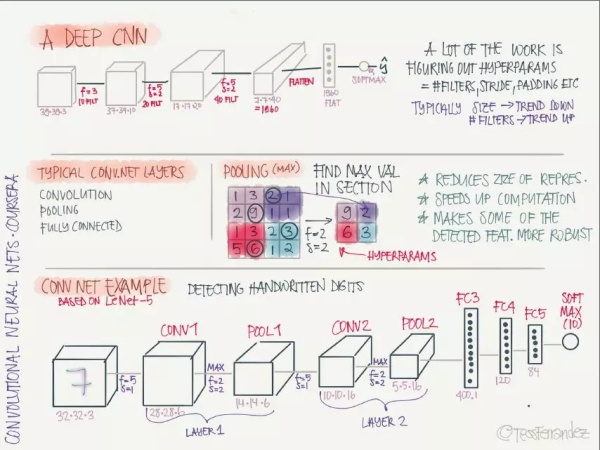 A DEEP CNN
39·39·3
f=3
10 FILT
37·37·10
f=5
s=2
20 FILT
17·17·20
f=5
s=2
40 FILT
7·7·40
=1960
FLATTEN
1960
FLAT
SOFTMAX
ŷ
A LOT OF THE WORK IS
FIGURING OUT HYPERPARAMS
= #FILTERS, STRIDE, PADDING ETC
TYPICALLY SIZE → TREND DOWN
# FILTERS → TREND UP
TYPICAL CONV.NET LAYERS
CONVOLUTION
POOLING
FULLY CONNECTED
POOLING (MAX)
FIND MAX VAL
IN SECTION
1 3 2 1
2 9 1 1
1 3 2 3
5 6 1 2
f=2
s=2
9 2
6 3
HYPERPARAMS
★ REDUCES SIZE OF REPRES.
★ SPEEDS UP COMPUTATION
★ MAKES SOME OF THE
DETECTED FEAT. MORE ROBUST
CONVOLUTIONAL NEURAL NETS · COURSERA
CONV NET EXAMPLE
BASED ON LeNet-5
DETECTING HANDWRITTEN DIGITS
7
32·32·3
f=5
s=1
CONV1
28·28·6
MAX
f=2
s=2
POOL1
14·14·6
LAYER 1
f=5
s=1
CONV2
10·10·16
MAX
f=2
s=2
POOL2
5·5·16
LAYER 2
FC3
400,1
FC4
120
FC5
84
SOFT
MAX
(10)
©TessFerrandez